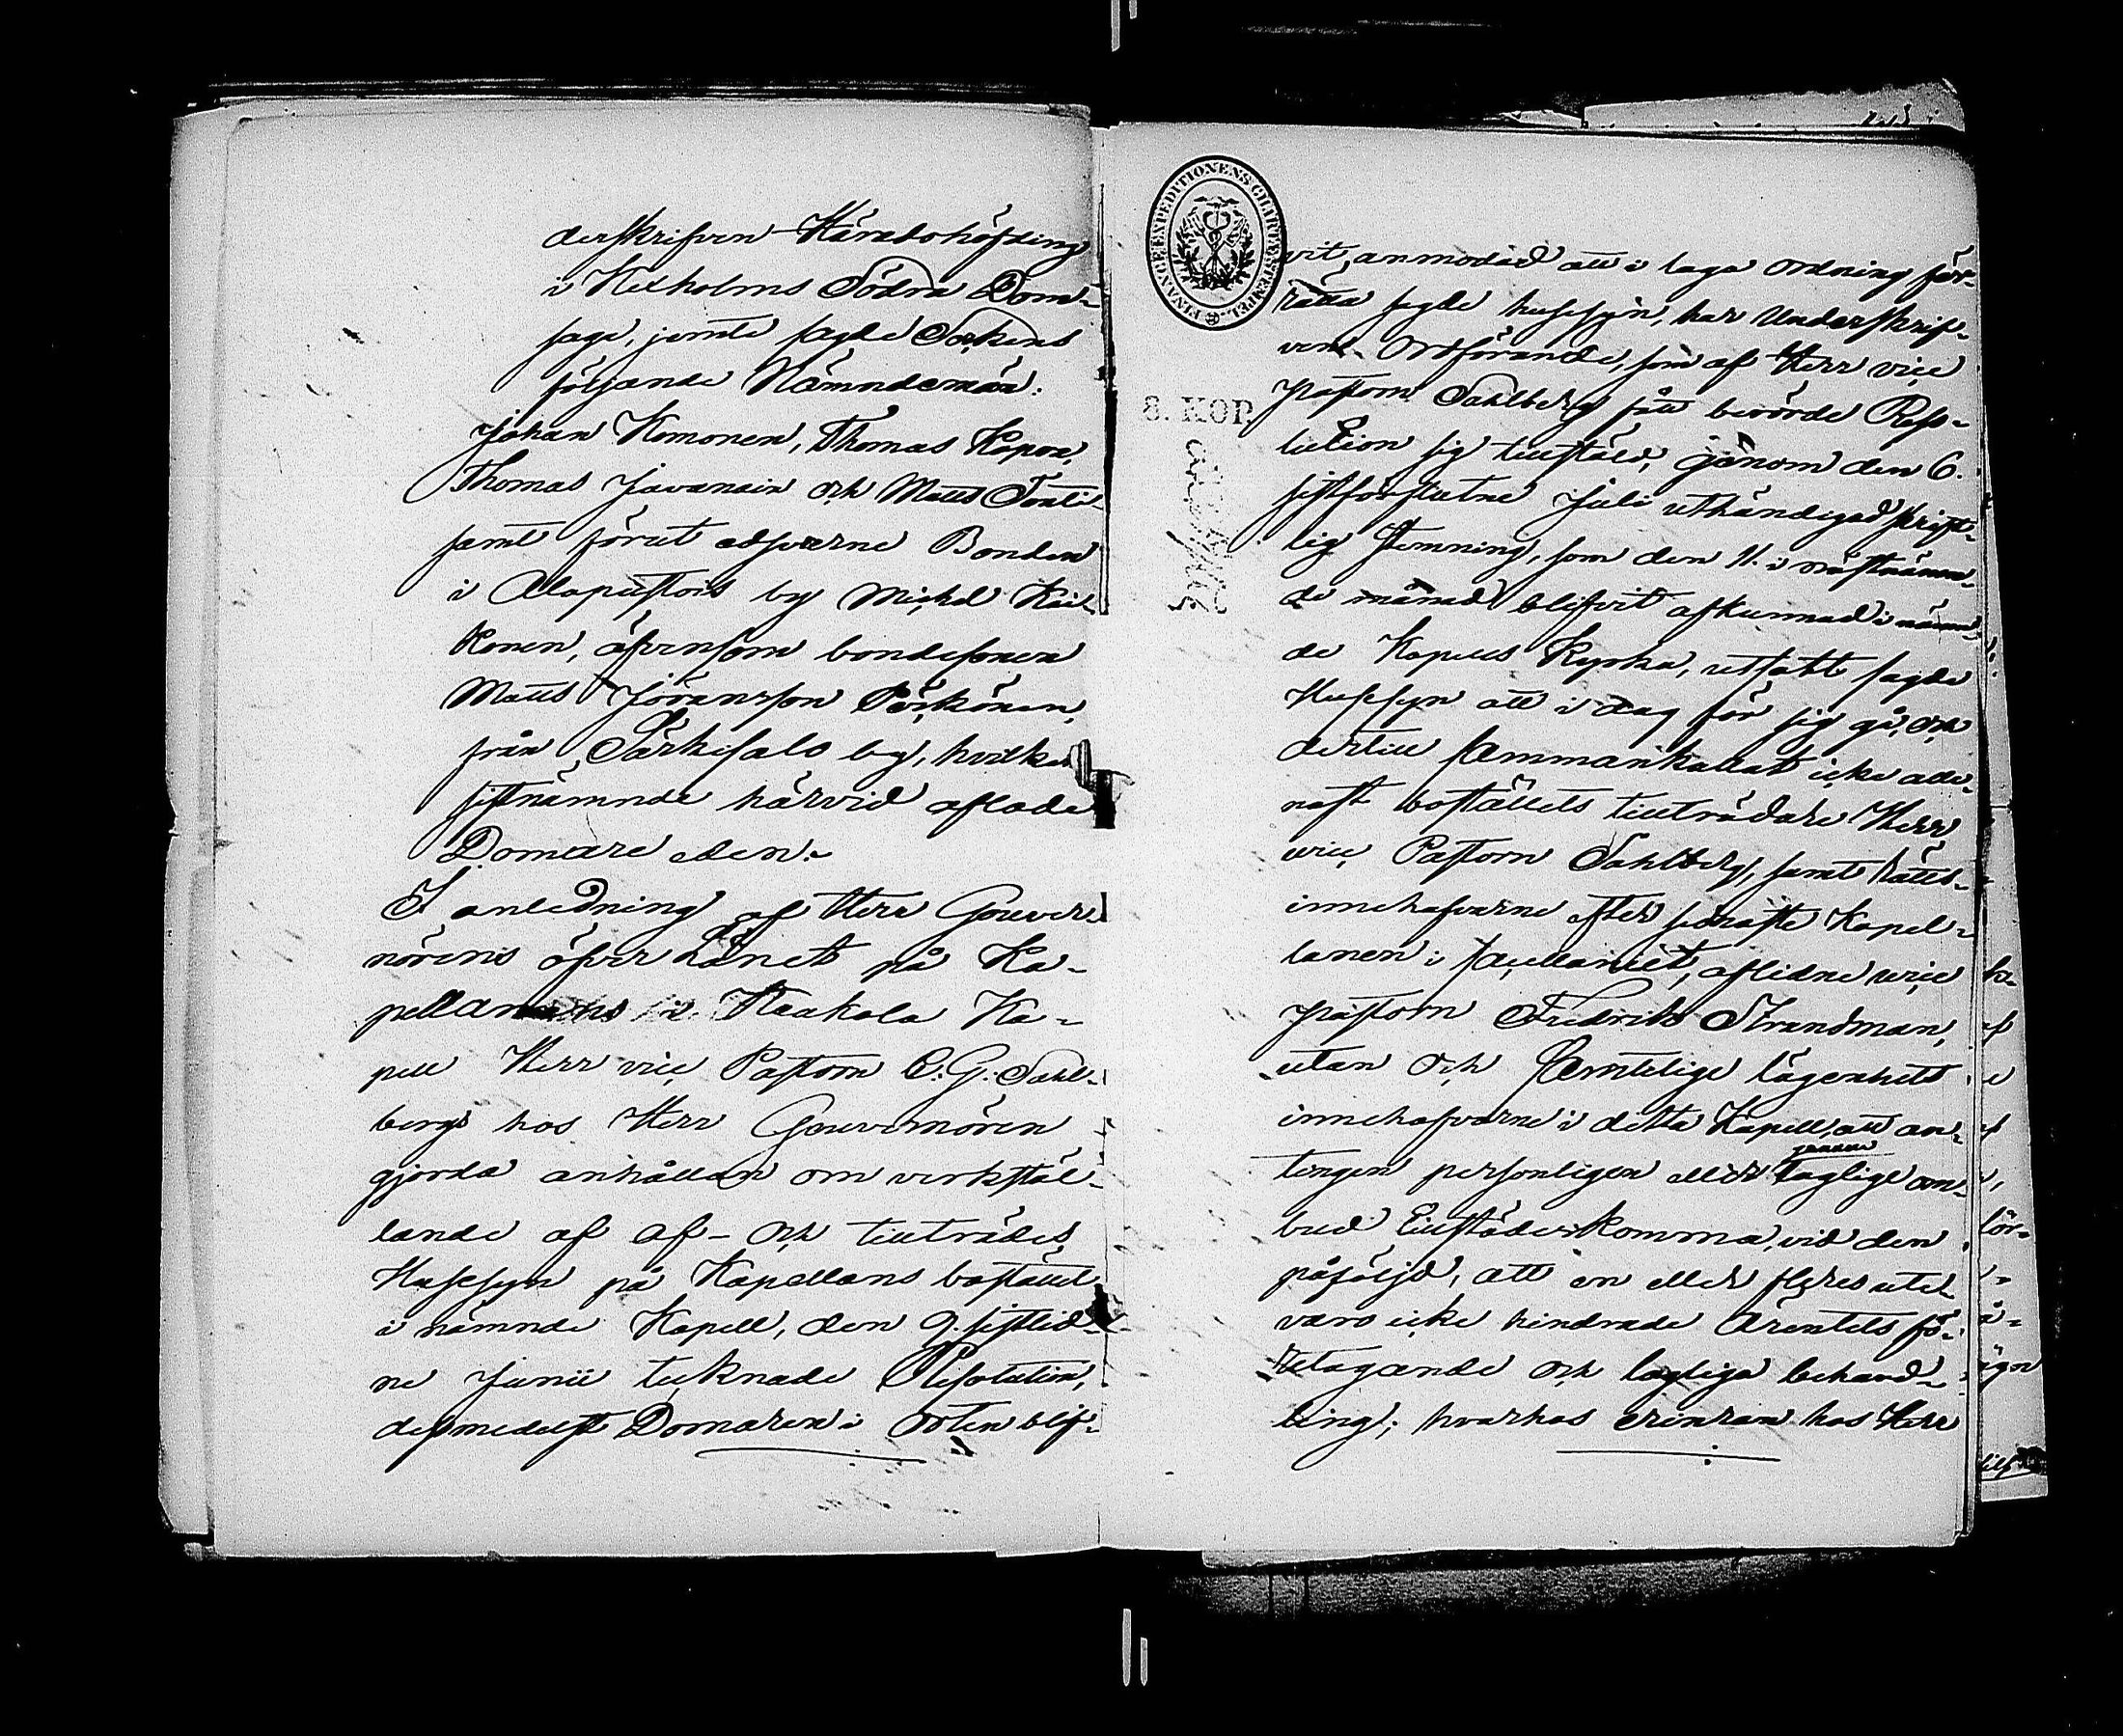 derskrifven Häradshöfding
i Kexholms Södra Dom-
saga, jemte sagde Sokens
följande Nämndemän:
Johan Komonen, Thomas Kopra,
Thomas Javanain och Matts Tonti
samt förut edsvarne Bonden
i Alapustois by Michel Kai-
konen, äfvensom bondesonen
Matts Jöransson Pörkönen,
från Särkisalo by, hvilken
sistnämnde härvid aflade
Domare eden.
I anledning af Herr Gouver-
nörens öfver Länet på Ka-
pellanens i Kaukola Ka-
pell Herr vice Pastorn C. G. Sahl-
bergs hos Herr Gouvernören
gjorda anhållan om verkstäl-
lande af af- och tillträdes
Husesyn på Kapellans bostället
i nämnde Kapell, den 9. sistlid-
ne Junii tecknade Resolution,
dessmedelst Domaren i Orten blif-
FINANCE EXPEDITIONENS CHARTÆ STEMPEL
8. KOP.
vit anmodad att i laga ordning för-
rätta sagde husesyn, har Underskrif-
ven Ordförande, som af Herr vice
pastorn Sahlberg fått berörde Reso-
lution sig tillstäld, genom den 6.
sistförflutne Juli uthändigad skrift-
lig Stemning, som den 11. i nästnämn-
de månad blifvit afkunnad i nämn-
de Kapells Kyrka, utsatt sagde
Husesyn att i dag för sig gå, och
dertill sammankallat icke alle-
nast boställets tillträdare Herr
vice Pastorn Sahlberg, samt Rätts-
innehafvarne efter sednaste Kapel-
lanen i stället, aflidne vice
pastorn Fredrik Strandman,
utan och samtelige lägenhets
innehafvarne i detta Kapell, att an-
tingen personligen eller genom laglige om-
bud tillstädes komma, vid den
påföljd, att en eller fleres ute-
varo icke hindrade Ärendets fö-
retagande och lagliga behand-
ling; hvarhos erinran hos Herr